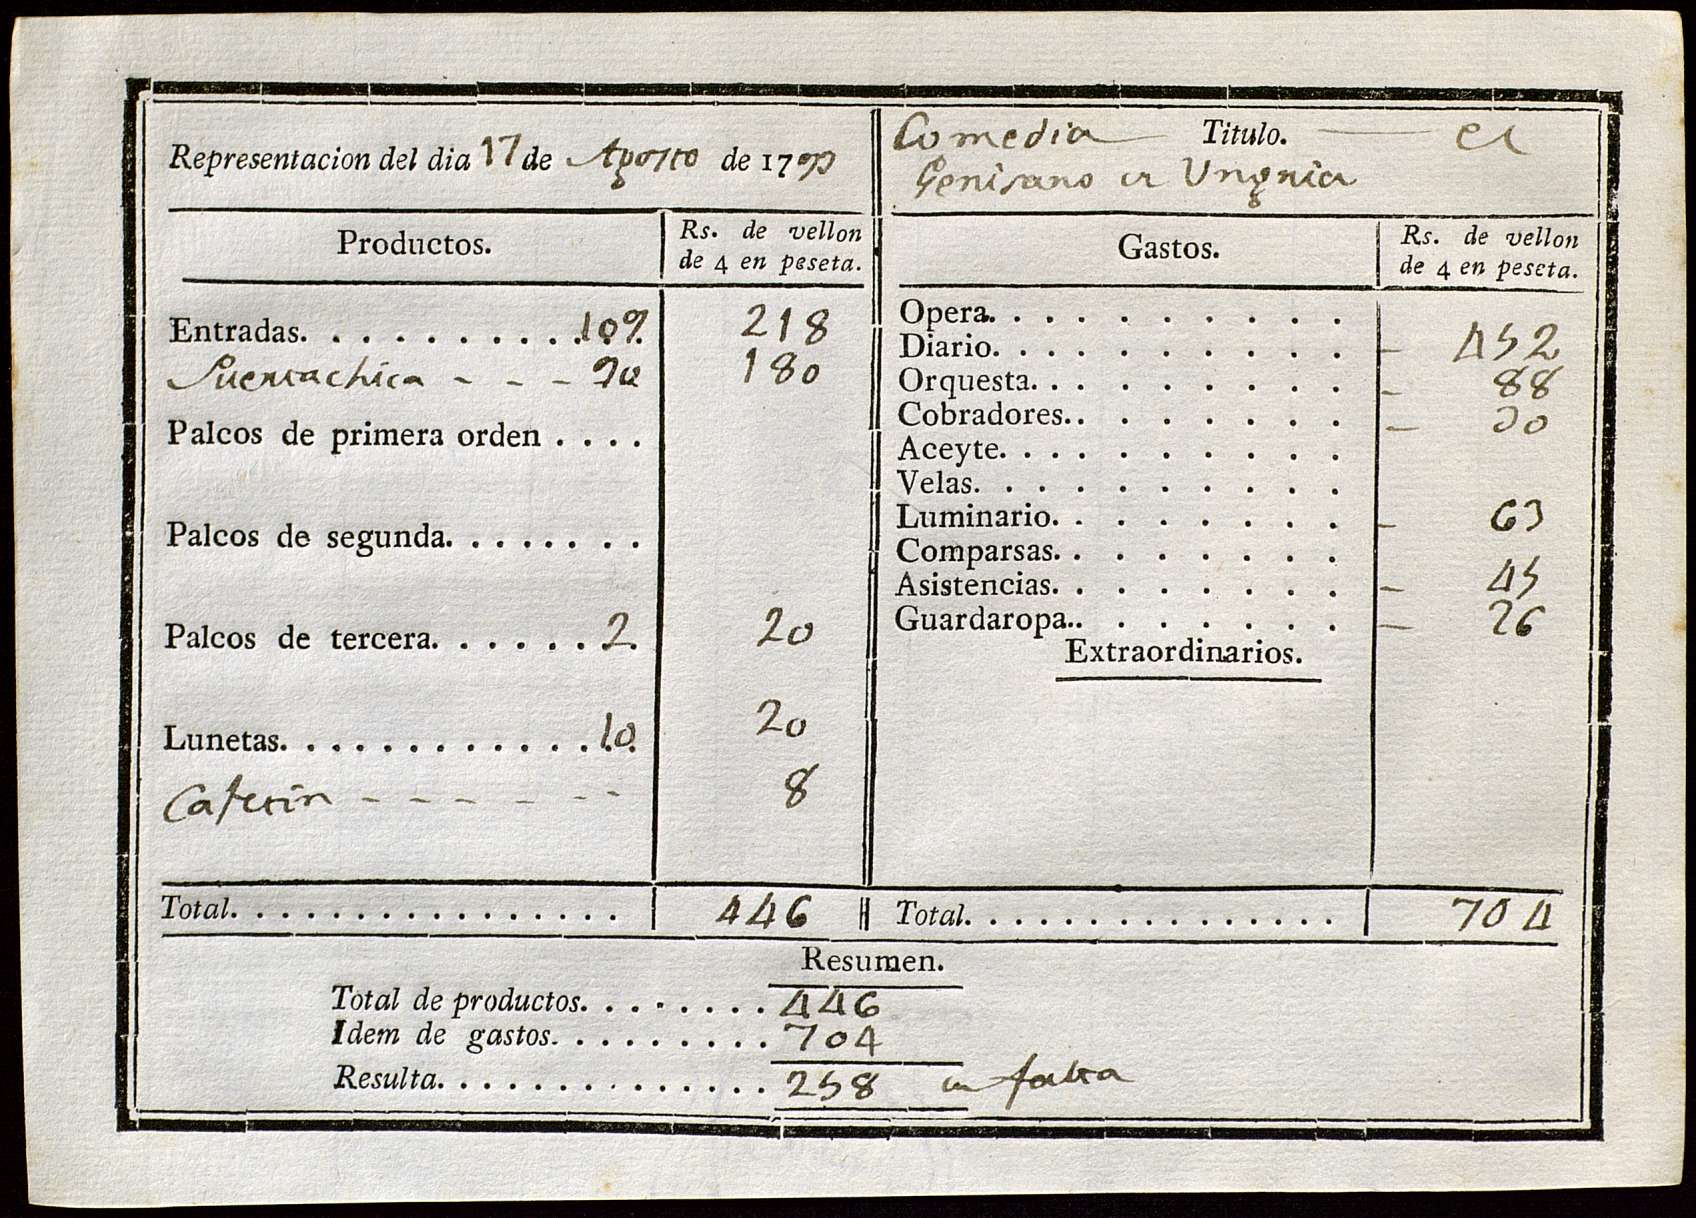 Representacion del dia 17 de Agosto de 1799
Comedia Titulo. el
Genisaro de Ungria
Productos.
Rs. de vellon
de 4 en peseta.
Entradas. . . . . . . . . . . 109. 218
Puertachica - - - 90 180
Palcos de primera orden . . . .
Palcos de segunda. . . . . . . .
Palcos de tercera. . . . . . 2. 20
Lunetas. . . . . . . . . . . . . 10. 20
Cafetin - - - - - - - 8
Total. . . . . . . . . . . . . . . . 446
Gastos.
Rs. de vellon
de 4 en peseta.
Opera. . . . . . . . . . .
Diario. . . . . . . . . . . - 452
Orquesta. . . . . . . . . . - 88
Cobradores. . . . . . . . . - 30
Aceyte. . . . . . . . . . .
Velas. . . . . . . . . . .
Luminario. . . . . . . . . - 63
Comparsas. . . . . . . . .
Asistencias. . . . . . . . - 45
Guardaropa. . . . . . . . - 26
Extraordinarios.
Total. . . . . . . . . . . . . . . 704
Resumen.
Total de productos. . . . . . . . 446
Idem de gastos. . . . . . . . . 704
Resulta. . . . . . . . . . . . . . 258 en falta